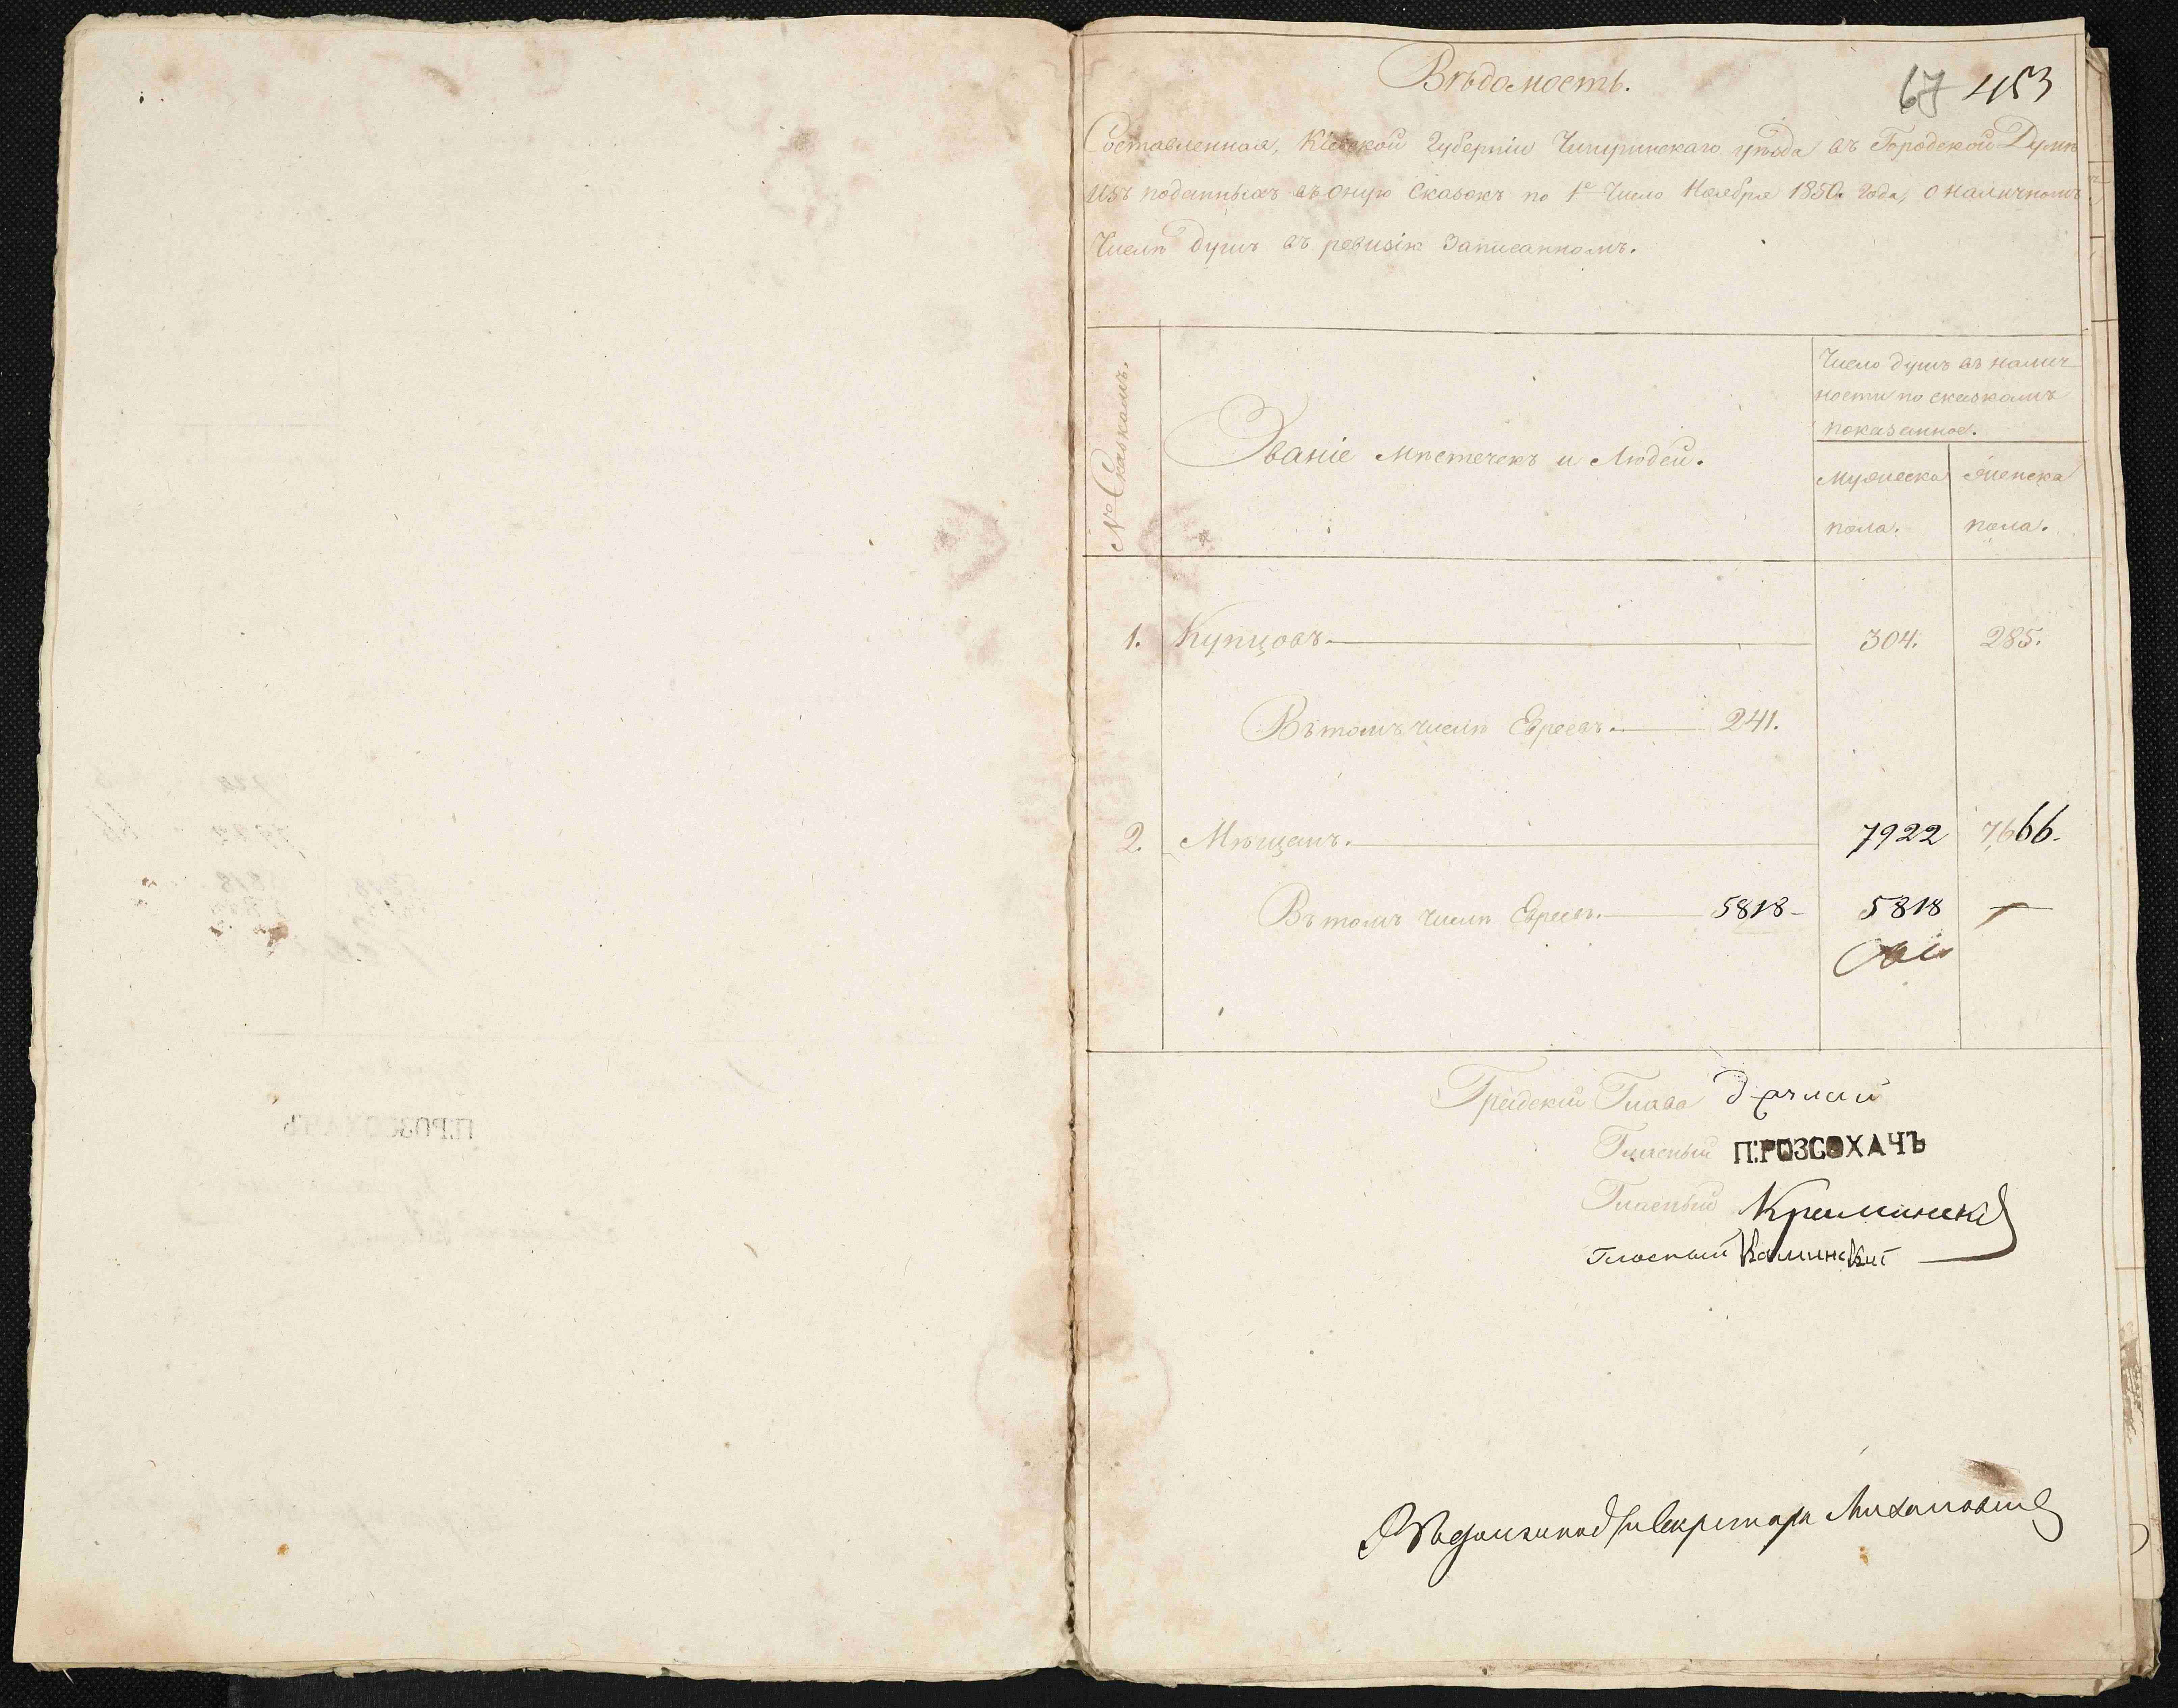 Вѣдомость.
67 453
Составленная, Кіевской Губерніи Чигиринскаго уѣзда въ Городской Думѣ
Изъ поданныхъ въ оную Сказокъ по 1е Число Ноября 1850 года, о наличномъ
Числѣ душъ въ ревизію записанномъ.
№ Сказкамъ.
Званіе мѣстечекъ и Людей.
Число душъ въ налич
ности по сказкамъ
показанное.
Мужеска
пола.
Женска
пола.
1. Купцовъ 304. 285.
Въ томъ числѣ Евреевъ 241.
2. Мѣщанъ. 7922 7666.
Въ томъ числѣ Евреевъ. 5818 5818
Градскій Глава
Гласный П:РОЗСОХАЧЪ
Гласный
Гласный Калинскій
Секретарь